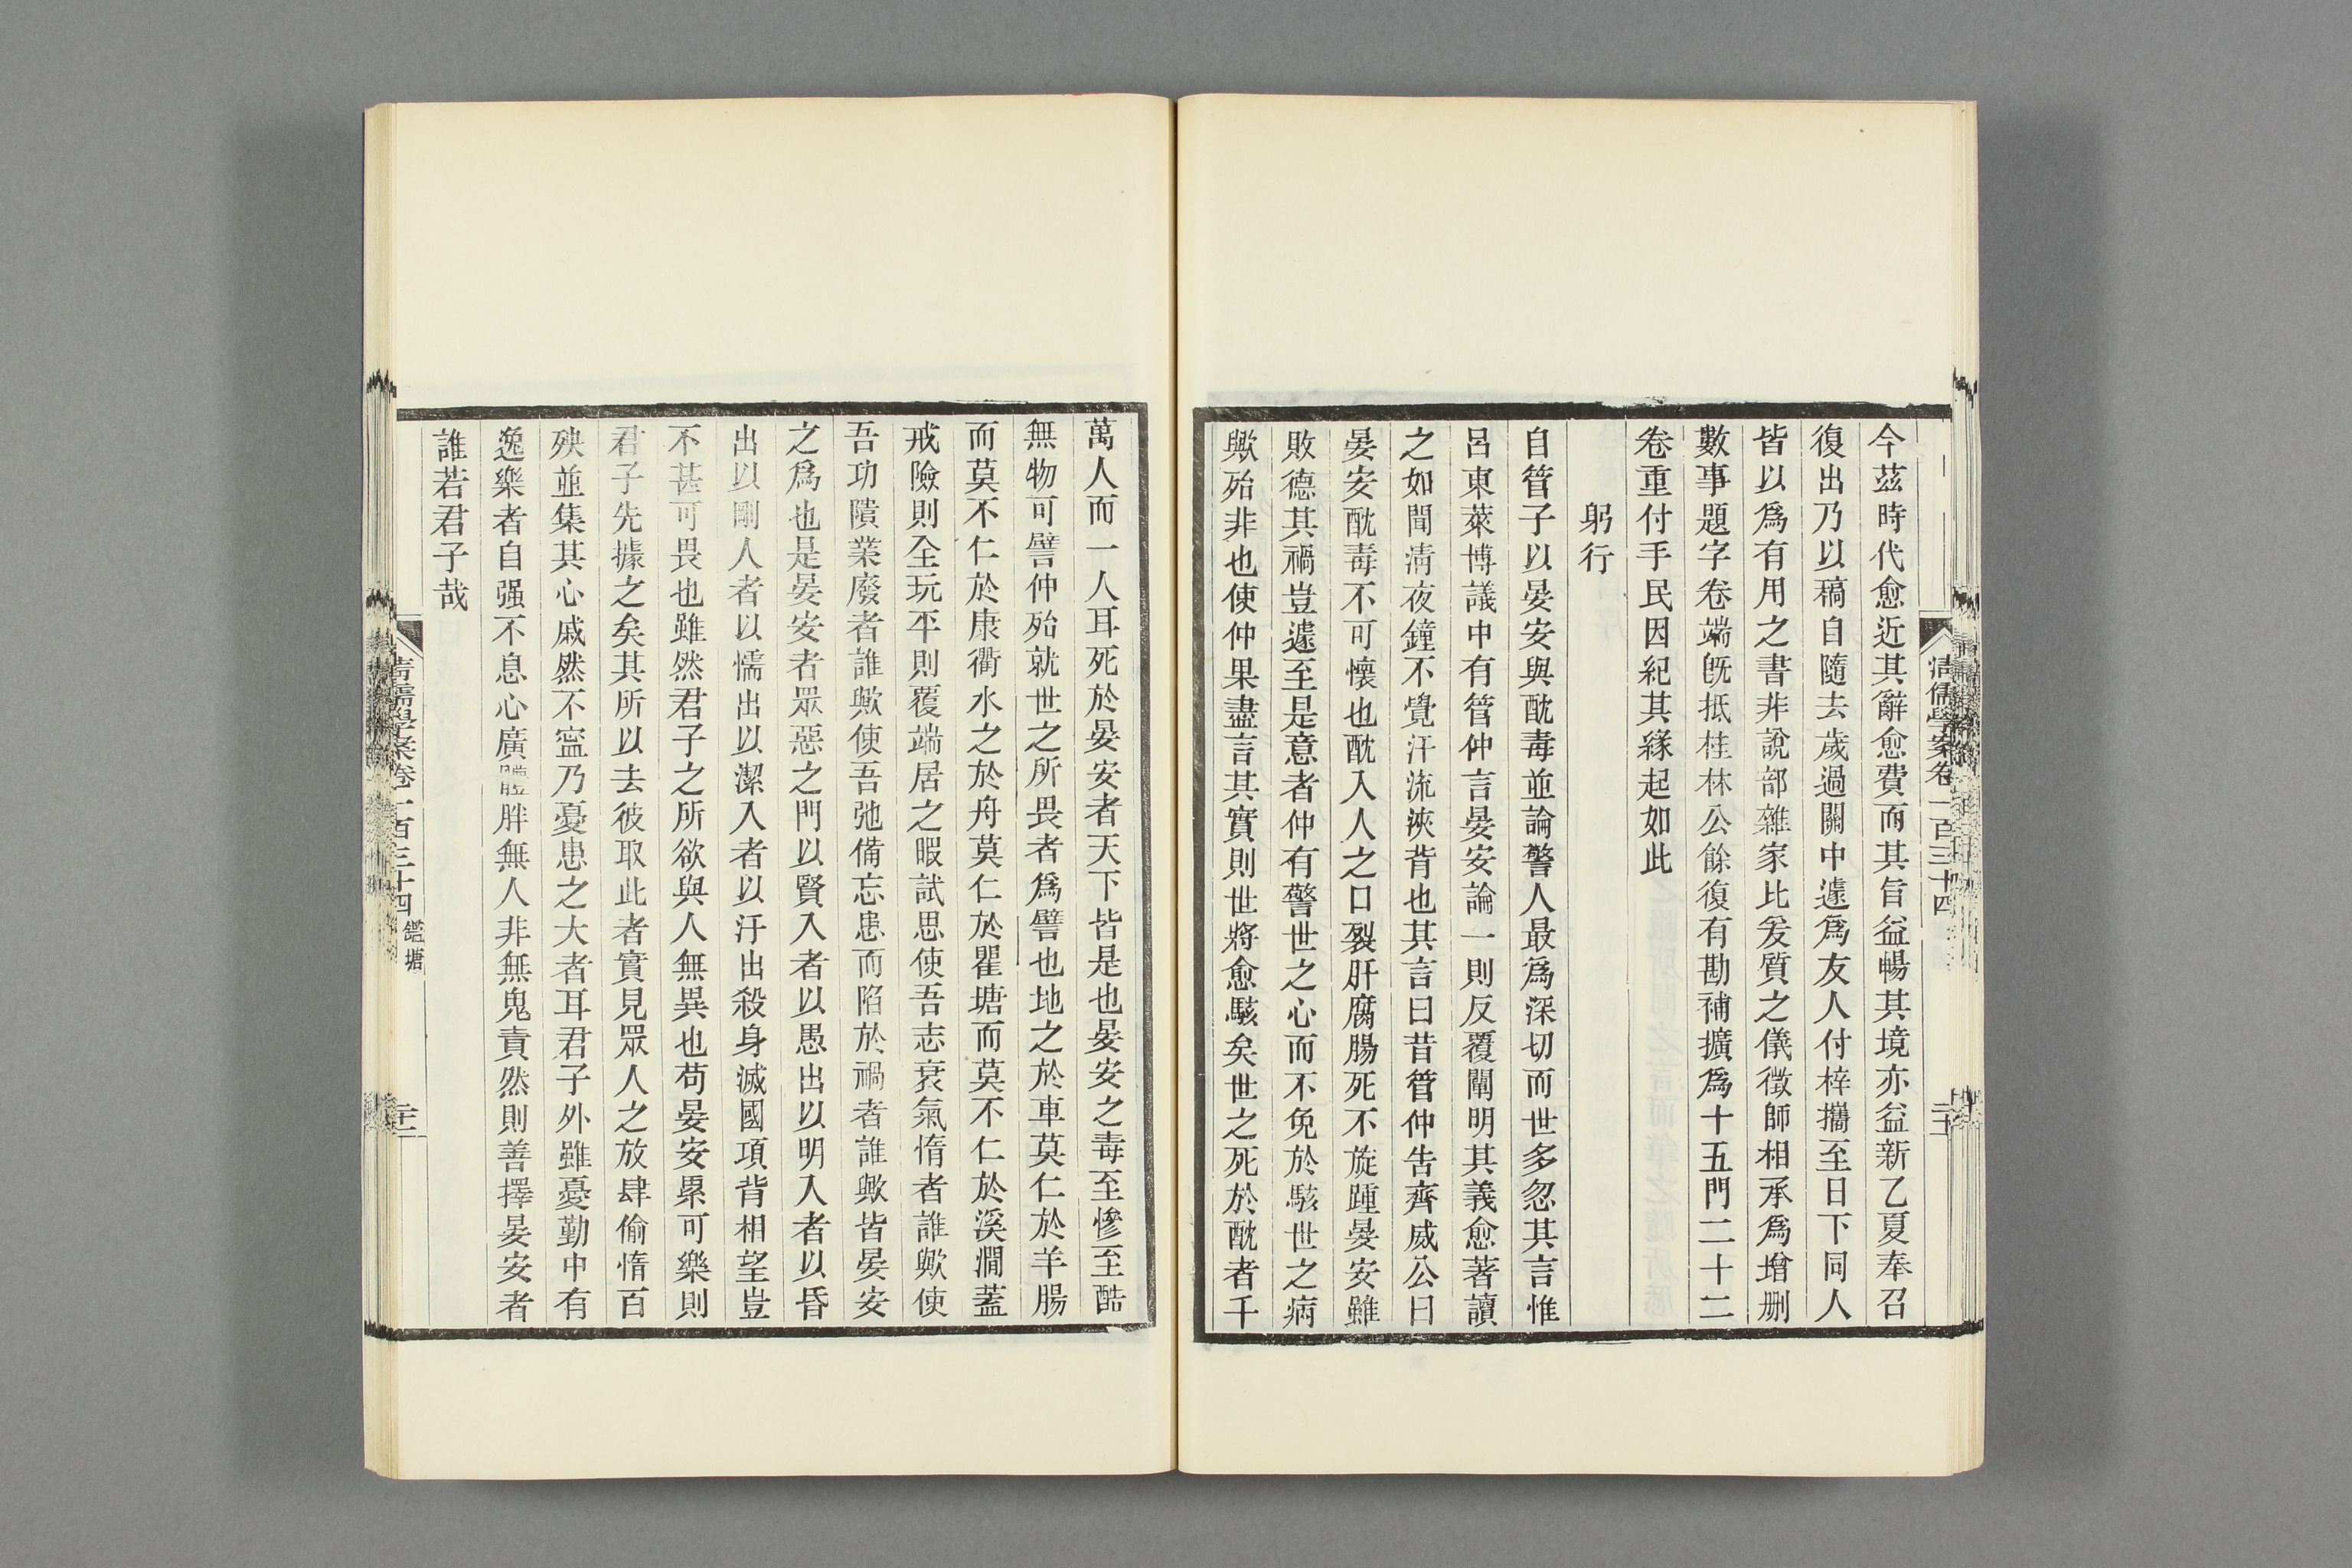 清儒學案卷一百三十四
今茲時代愈近其辭愈費而其旨益暢其境亦益新乙夏奉召
復出乃以稿自隨去歲過關中遽爲友人付梓攜至日下同人
皆以爲有用之書非說部雜家比爰質之儀徵師相承爲增刪
數事題字卷端旣抵桂林公餘復有勘補擴爲十五門二十二
卷重付手民因紀其緣起如此
躬行
自管子以晏安與酖毒並論警人最爲深切而世多忽其言惟
呂東萊博議中有管仲言晏安論一則反覆闡明其義愈著讀
之如聞淸夜鐘不覺汗流浹背也其言曰昔管仲告齊威公曰
晏安酖毒不可懷也酖入人之口裂肝腐腸死不旋踵晏安雖
敗德其禍豈遽至是意者仲有警世之心而不免於駭世之病
歟殆非也使仲果盡言其實則世將愈駭矣世之死於酖者千
萬人而一人耳死於晏安者天下皆是也晏安之毒至慘至酷
無物可譬仲殆就世之所畏者爲譬也地之於車莫仁於羊腸
而莫不仁於康衢水之於舟莫仁於瞿塘而莫不仁於溪澗蓋
戒險則全玩平則覆端居之暇試思使吾志衰氣惰者誰歟使
吾功隤業廢者誰歟使吾弛備忘患而陷於禍者誰歟皆晏安
之爲也是晏安者眾惡之門以賢入者以愚出以明入者以昏
出以剛入者以懦出以潔入者以汙出殺身滅國項背相望豈
不甚可畏也雖然君子之所欲與人無異也苟晏安果可樂則
君子先據之矣其所以去彼取此者實見眾人之放肆偷惰百
殃並集其心戚然不寍乃憂患之大者耳君子外雖憂勤中有
逸樂者自强不息心廣體胖無人非無鬼責然則善擇晏安者
誰若君子哉
清儒學案卷一百三十四 鑑塘